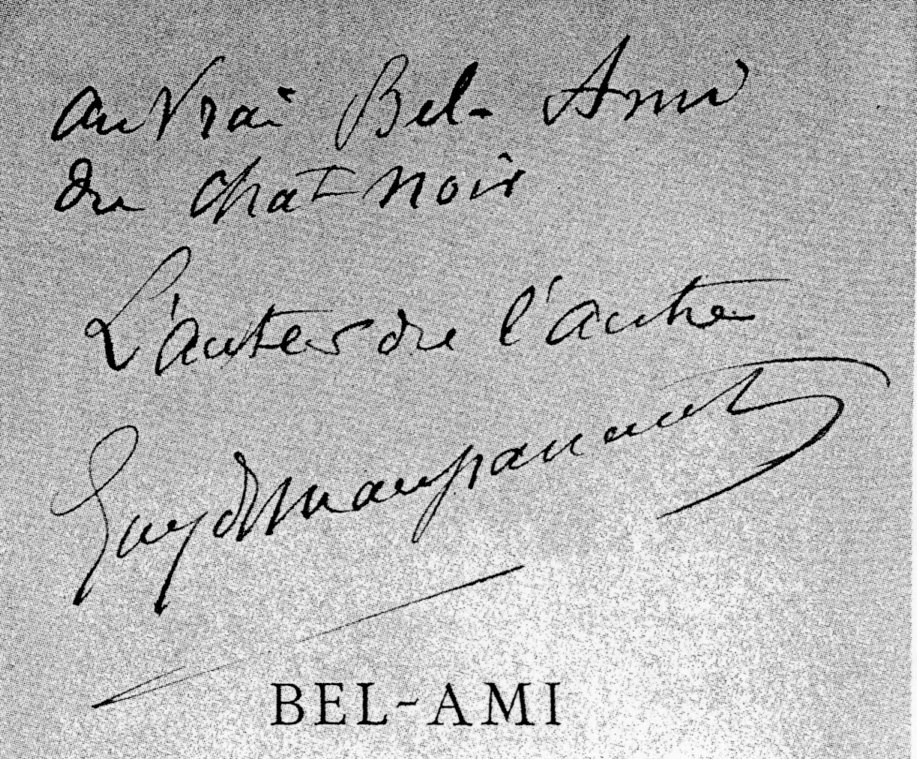 au Vrai Bel-Ami
du Chat noir
L'auteur de l'autre
Guy de Maupassant
BEL-AMI